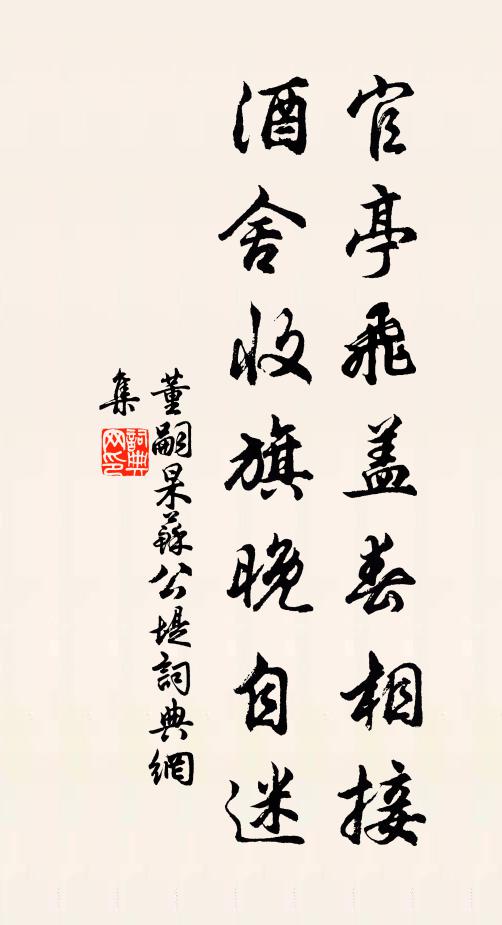 官亭飛盖春相接
酒舍收旗晚自迷
董嗣杲蘇公堤詞典網
集
詞典網印